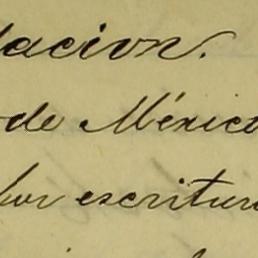 dacion.
de México
por escritura